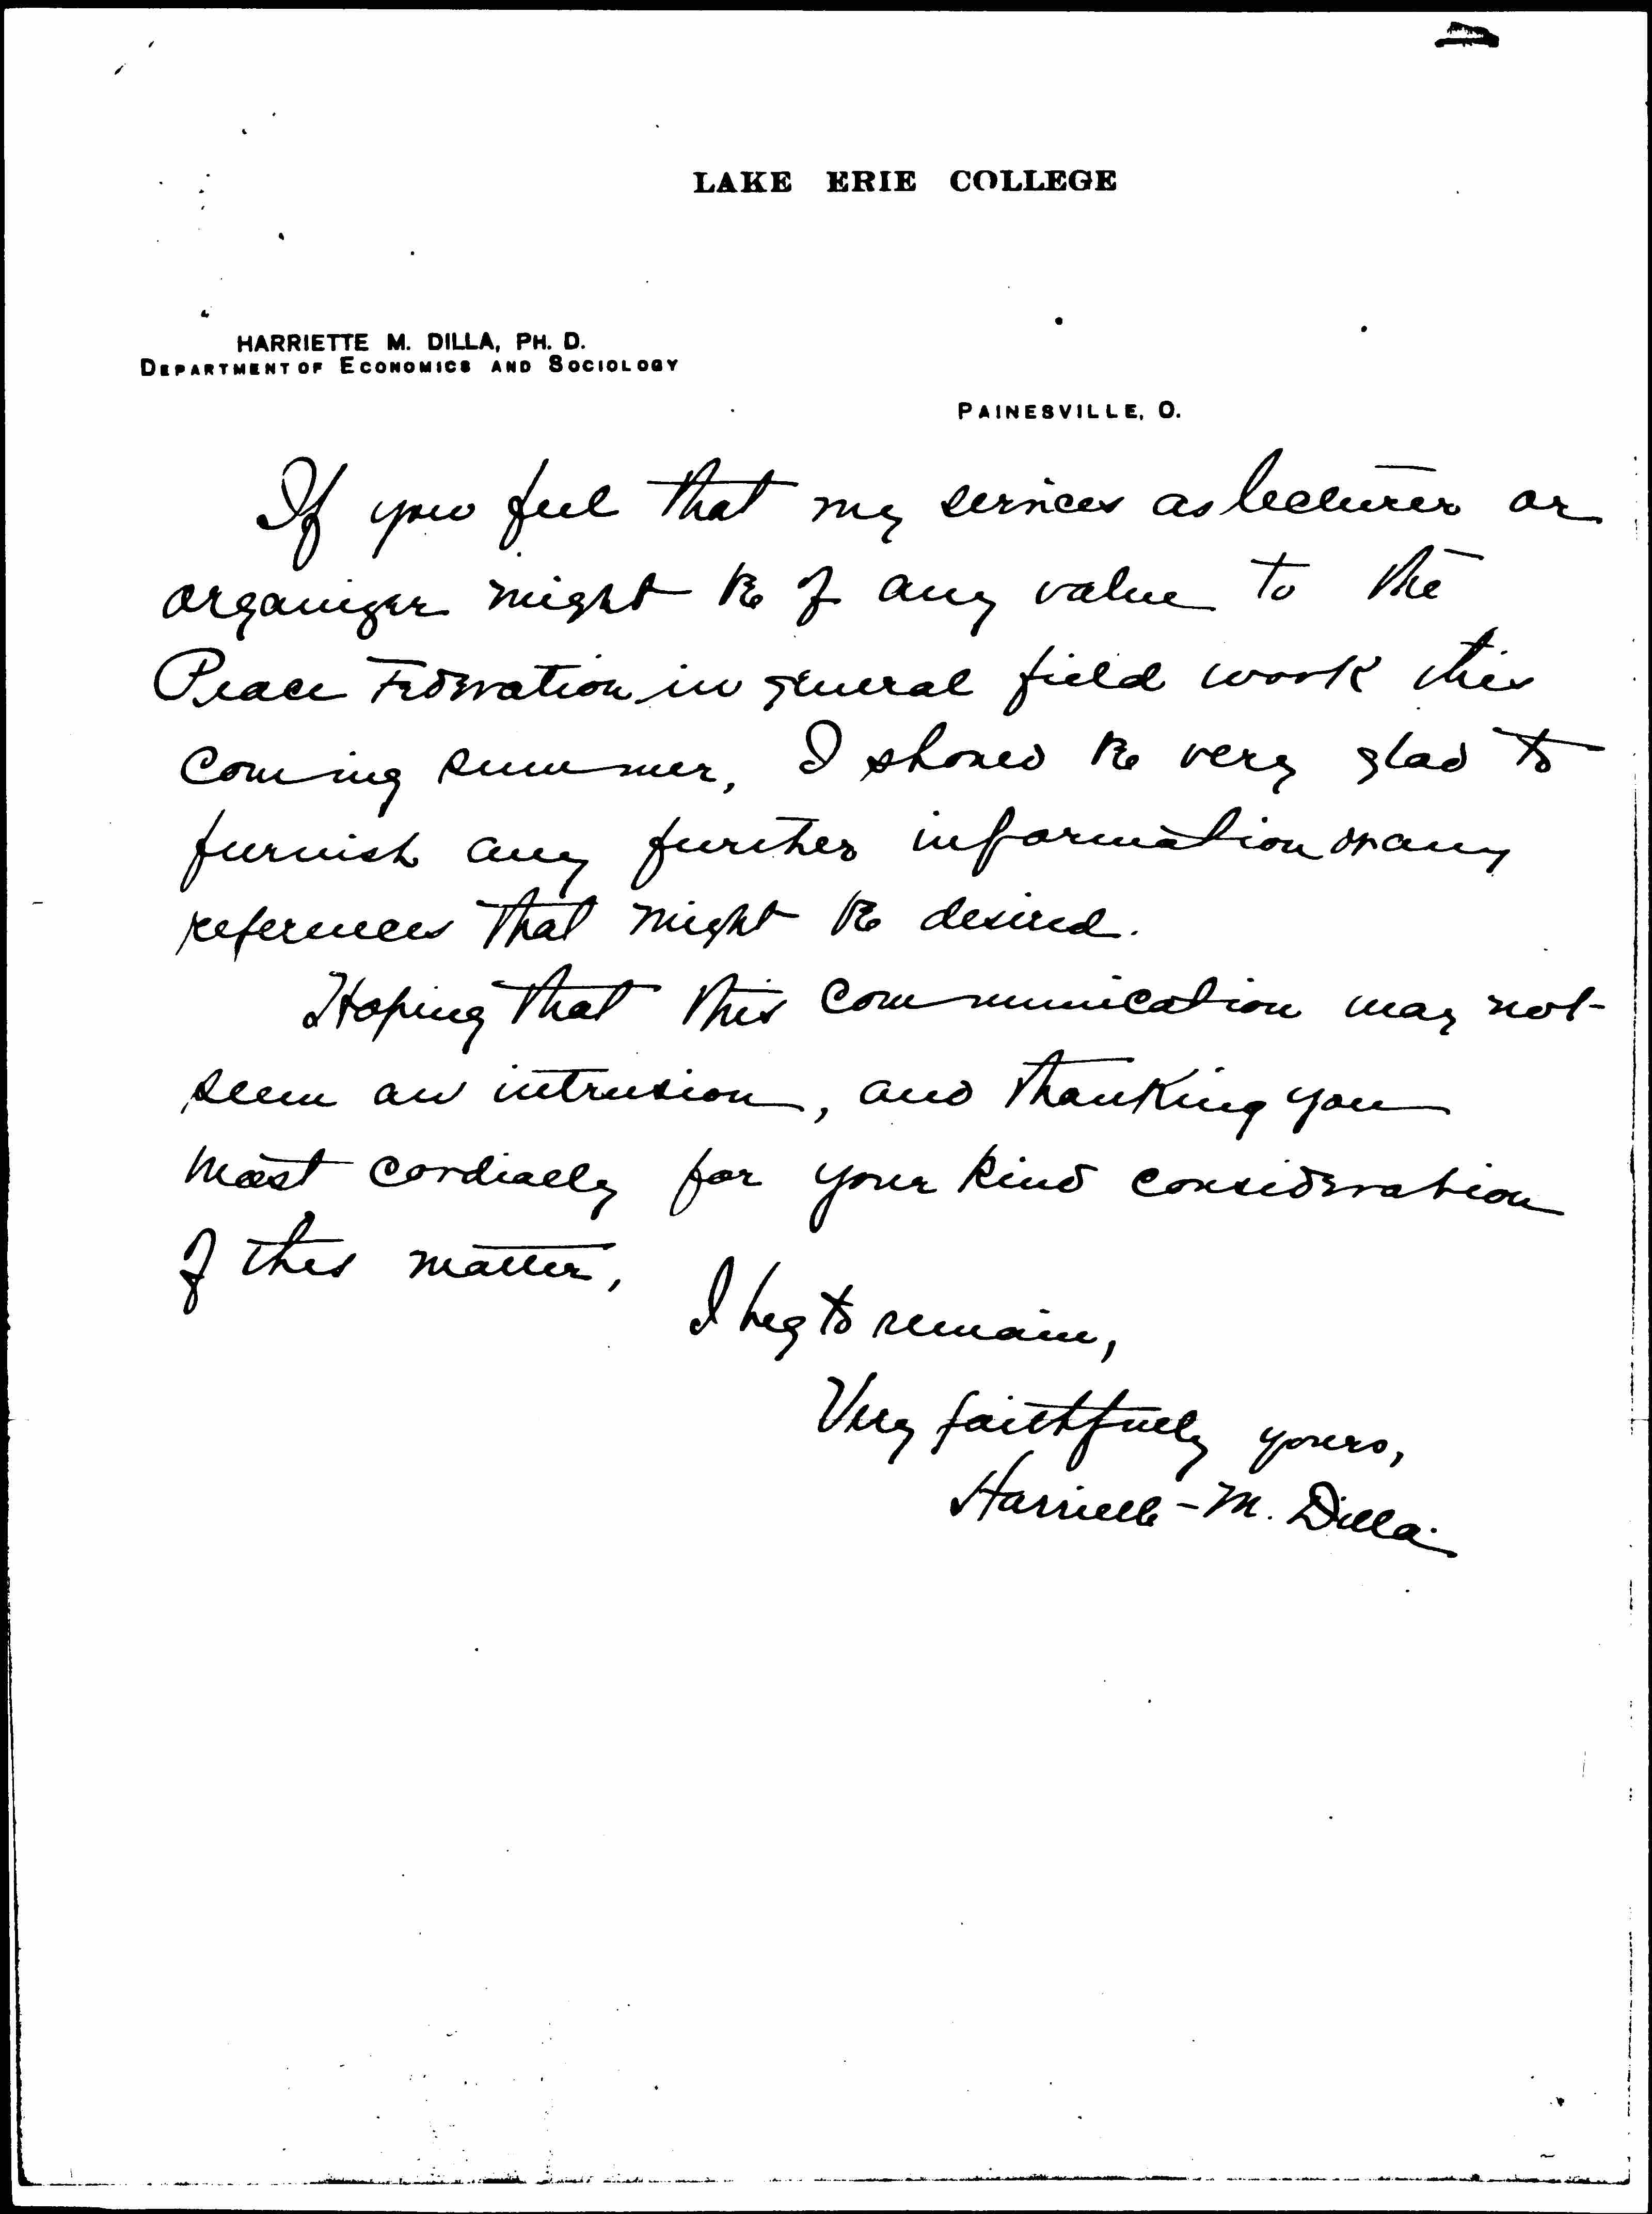 LAKE ERIE COLLEGE
HARRIETTE M. DILLA, PH. D.
DEPARTMENT OF ECONOMICS AND SOCIOLOGY
PAINESVILLE, O.
If you feel that my services as lecturer or
organizer might be of any value to the
Peace Federation in general field work this
coming summer, I should be very glad to
furnish any further information or any
references that might be desired.
Hoping that this communication may not
seem an intrusion, and thanking you
most cordially for your kind consideration
of this matter,
I beg to remain,
Very faithfully yours,
Harriette M. Dilla.